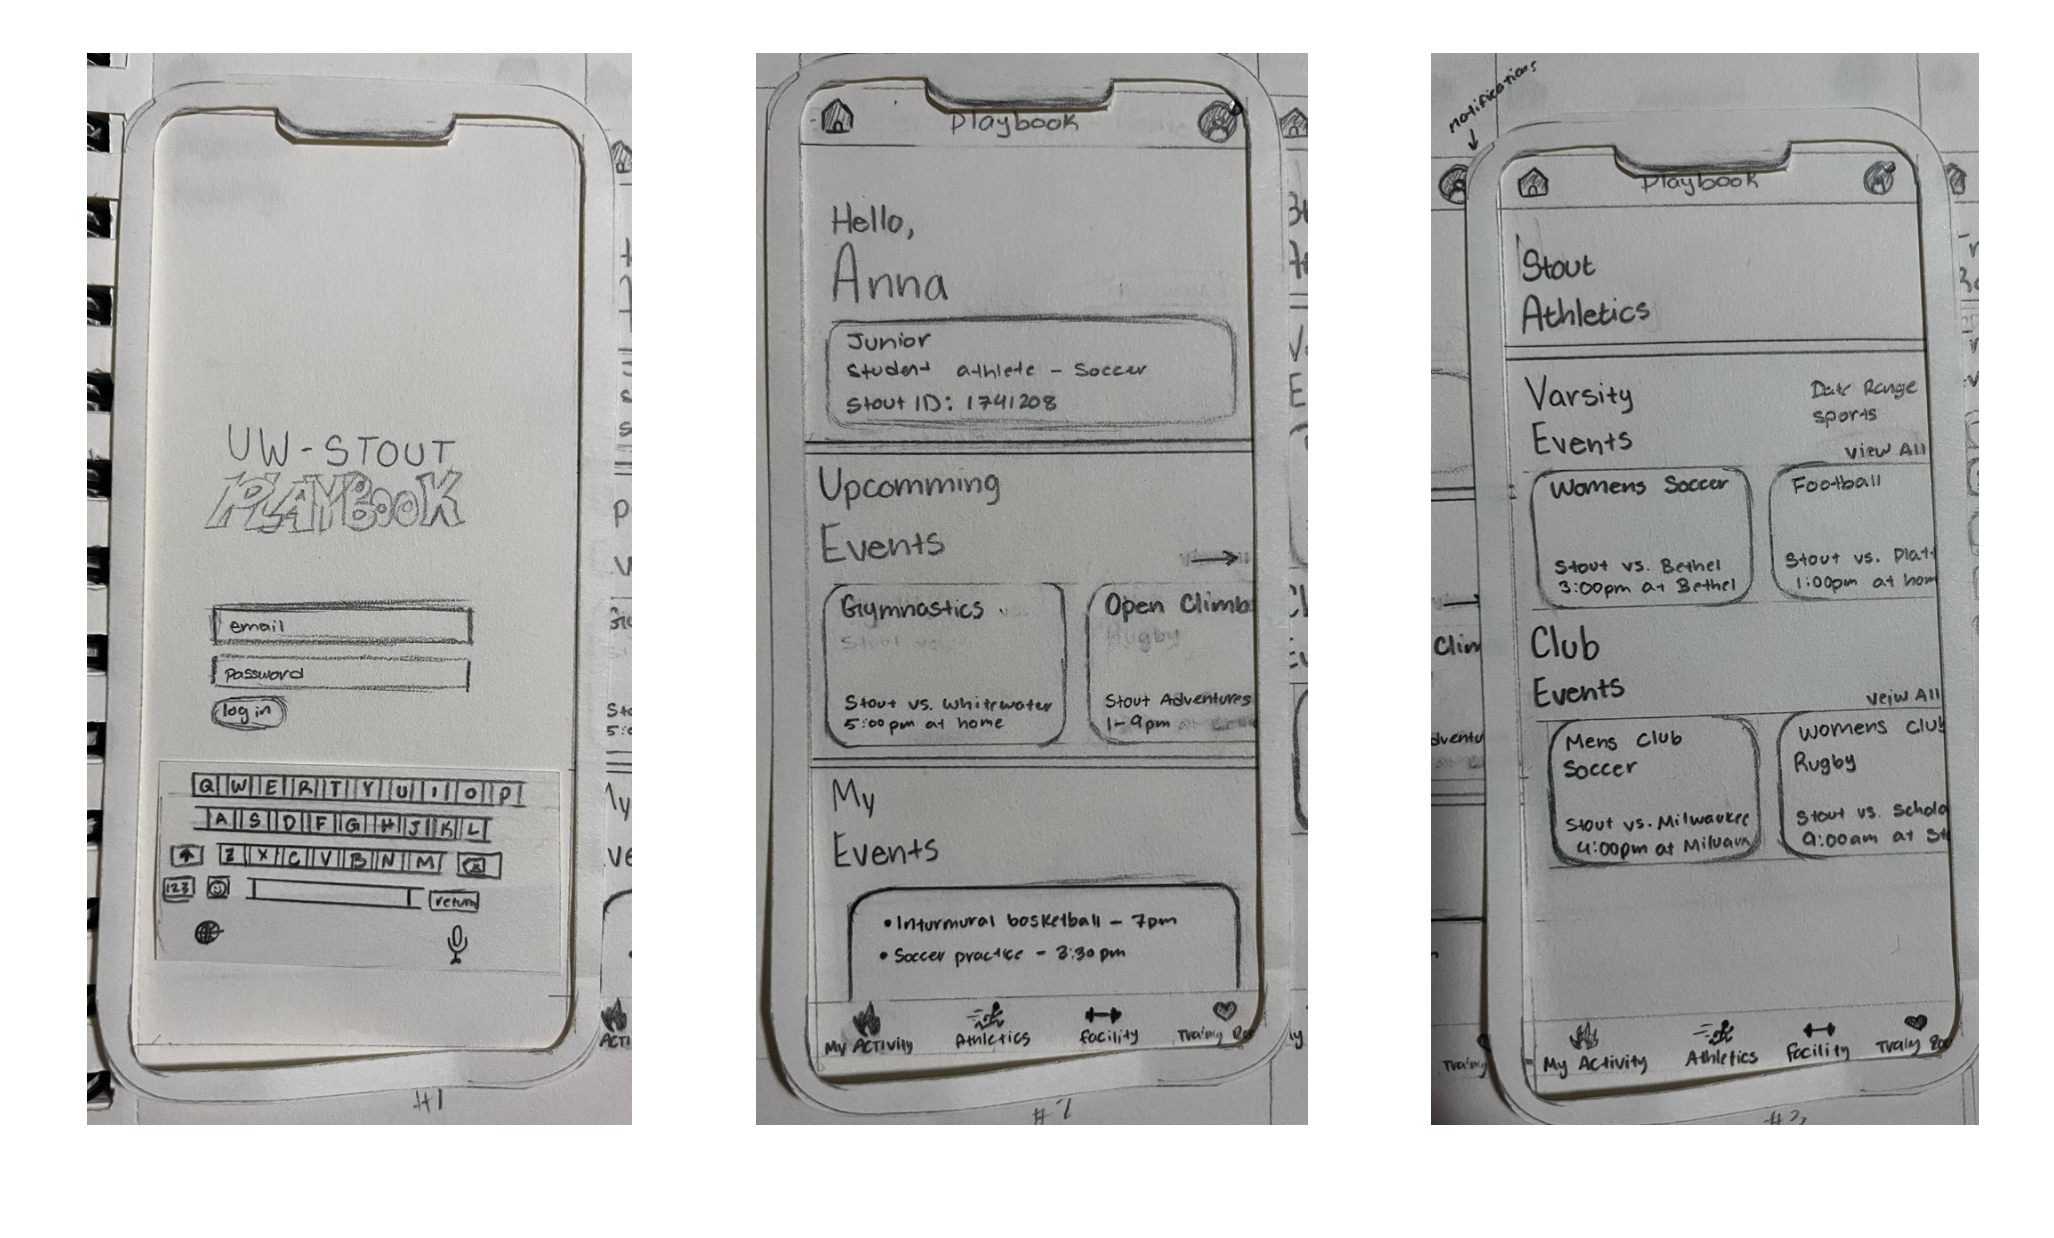 UW-STOUT
PLAYBOOK
email
password
log in
Q W E R T Y U I O P
A S D F G H J K L
Z X C V B N M
123
return
#1
Playbook
Hello,
Anna
Junior
Student athlete - Soccer
Stout ID: 1741208
Upcomming
Events
Gymnastics
Stout vs. Whitewater
5:00pm at home
Open Climb
Rugby
Stout Adventures
1-9pm
My
Events
• Inturmural basketball - 7pm
• Soccer practice - 3:30pm
My Activity
Athletics
Facility
#2
notifications
Playbook
Stout
Athletics
Varsity
Events
Date Range
sports
View All
Womens Soccer
Stout vs. Bethel
3:00pm at Bethel
Football
Stout vs. Platt
1:00pm at hom
Club
Events
Veiw All
Mens Club
Soccer
Stout vs. Milwaukee
4:00pm at Milwauk
Womens Club
Rugby
Stout vs. Schola
9:00am at St
My Activity
Athletics
Facility
#3